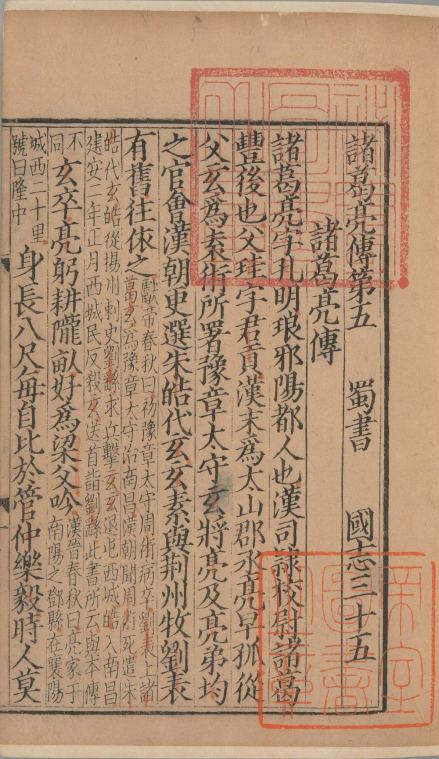 諸葛亮傳第五 蜀書 國志三十五
諸葛亮傳
諸葛亮字孔明琅邪陽都人也漢司隸校尉諸葛
豐後也父珪字君貢漢末爲太山郡丞亮早孤從
父玄爲袁術所署豫章太守玄將亮及亮弟均
之官會漢朝更選朱皓代玄玄素與荆州牧劉表
有舊往依之
獻帝春秋曰初豫章太守周術病卒劉表上諸
葛玄爲豫章太守治南昌漢朝聞周術死遣朱
皓代玄皓從揚州刺史劉繇求兵擊玄玄退屯西城皓入南昌
建安二年正月西城民反殺玄送首詣劉繇此書所云與本傳
不
同
玄卒亮躬耕隴畝好爲梁父吟
漢晉春秋曰亮家于
南陽之鄧縣在襄陽
城西二十里
號曰隆中
身長八尺每自比於管仲樂毅時人莫